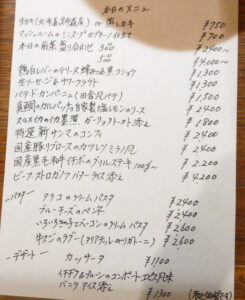 本日のメニュー
生カキ(北海道 厚岸産) or 蒸しカキ ¥750
マッシュルームのミニスープ カプチーノ仕立て ¥700
本日の前菜盛り合わせ 3品 ¥2400〜
5品 ¥4000〜
鶏白レバーのテリーヌ 黒コショウ ¥1300
生ソーセージ & サワークラウト ¥1300
パテドカンパーニュ (田舎風パテ) ¥1500
真鯛のカルパッチョ 自家製塩レモンのソース ¥2400
スルメイカのイカ墨煮 ガーリックトースト添え ¥1800
特選 新サンマのコンフィ ¥2400
国産豚リブロースのカツレツ ミラノ風 ¥2400
国産黒毛和牛イチボのグリルステーキ 100g〜 ¥2200
ビーフストロガノフ バターライス添え ¥4200
パスタ
タラコのクリームパスタ ¥2400
ブルーチーズのペンネ ¥2400
いろいろきのことベーコンのクリームパスタ ¥2600
牛スジのラグー (リガトーニ) ¥2600
デザート
カッサータ ¥1100
イチヂク&プルーンのコンポート
バニラアイス添え ¥1300